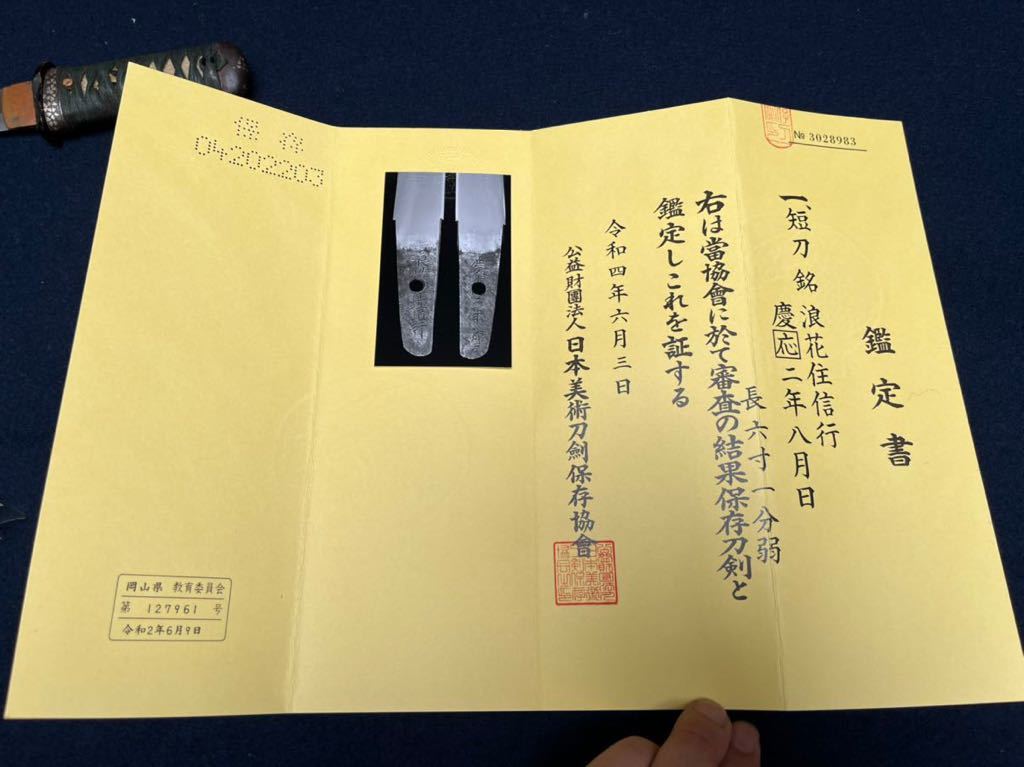 № 3028983
鑑定書
一、短刀 銘 浪花住信行
慶応二年八月日
長六寸一分弱
右は當協會に於て審査の結果保存刀剣と
鑑定しこれを証する
令和四年六月三日
公益財團法人日本美術刀劍保存協會
保存
04202203
岡山県 教育委員会
第 127961 号
令和2年6月9日